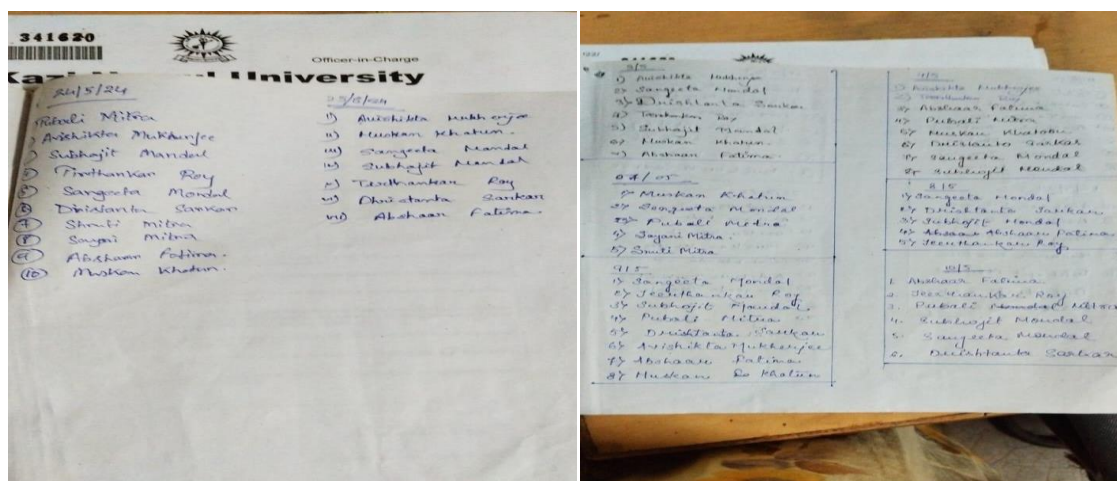 341620
Officer-in-Charge
Kazi Nazrul University
24/5/24
Pubali Mitra
Avishikta Mukherjee
Subhajit Mandal
Tirthankar Roy
5 Sangeeta Mondal
6 Dristanta Sarkar
7 Smriti Mitra
8 Sayani Mitra
9 Abshaar Fatima.
10 Muskan Khatun.
25/5/24
i) Avishikta Mukherjee
ii) Muskan Khatun.
iii) Sangeeta Mandal
iv) Subhajit Mandal
v) Tirthankar Roy
vi) Dhristanta Sarkar
vii) Abshaar Fatima.
3/5
1) Avishikta Mukherjee
2) Sangeeta Mondal
3) Drishtanta Sarkar
4) Tirthankar Roy
5) Subhajit Mondal
6) Muskan Khatun.
7) Abshaar Fatima.
1) Muskan Khatun
2) Sangeeta Mondal
3) Pubali Mitra
4) Sayani Mitra.
5) Smriti Mitra
9/5
1) Sangeeta Mondal
2) Teerthankar Roy
3) Subhajit Mondal
4) Pubali Mitra
5) Drishtanta Sarkar
6) Avishikta Mukherjee
7) Abshaar Fatima
8) Muskan Khatun
1) Avishikta Mukherjee
2) Tirthankar Roy
3) Abshaar Fatima
4) Pubali Mitra
5) Muskan Khatun
6) Dristanta Sarkar
7) Sangeeta Mondal
8) Subhajit Mondal
8/5
1) Sangeeta Mondal
2) Drishtanta Sarkar
3) Subhajit Mondal
4) Abshaar Fatima
5) Teerthankar Roy
10/5
1. Abshaar Fatima
2. Teerthankar Roy
3. Pubali Mitra
4. Subhajit Mondal
5. Sangeeta Mondal
6. Drishtanta Sarkar